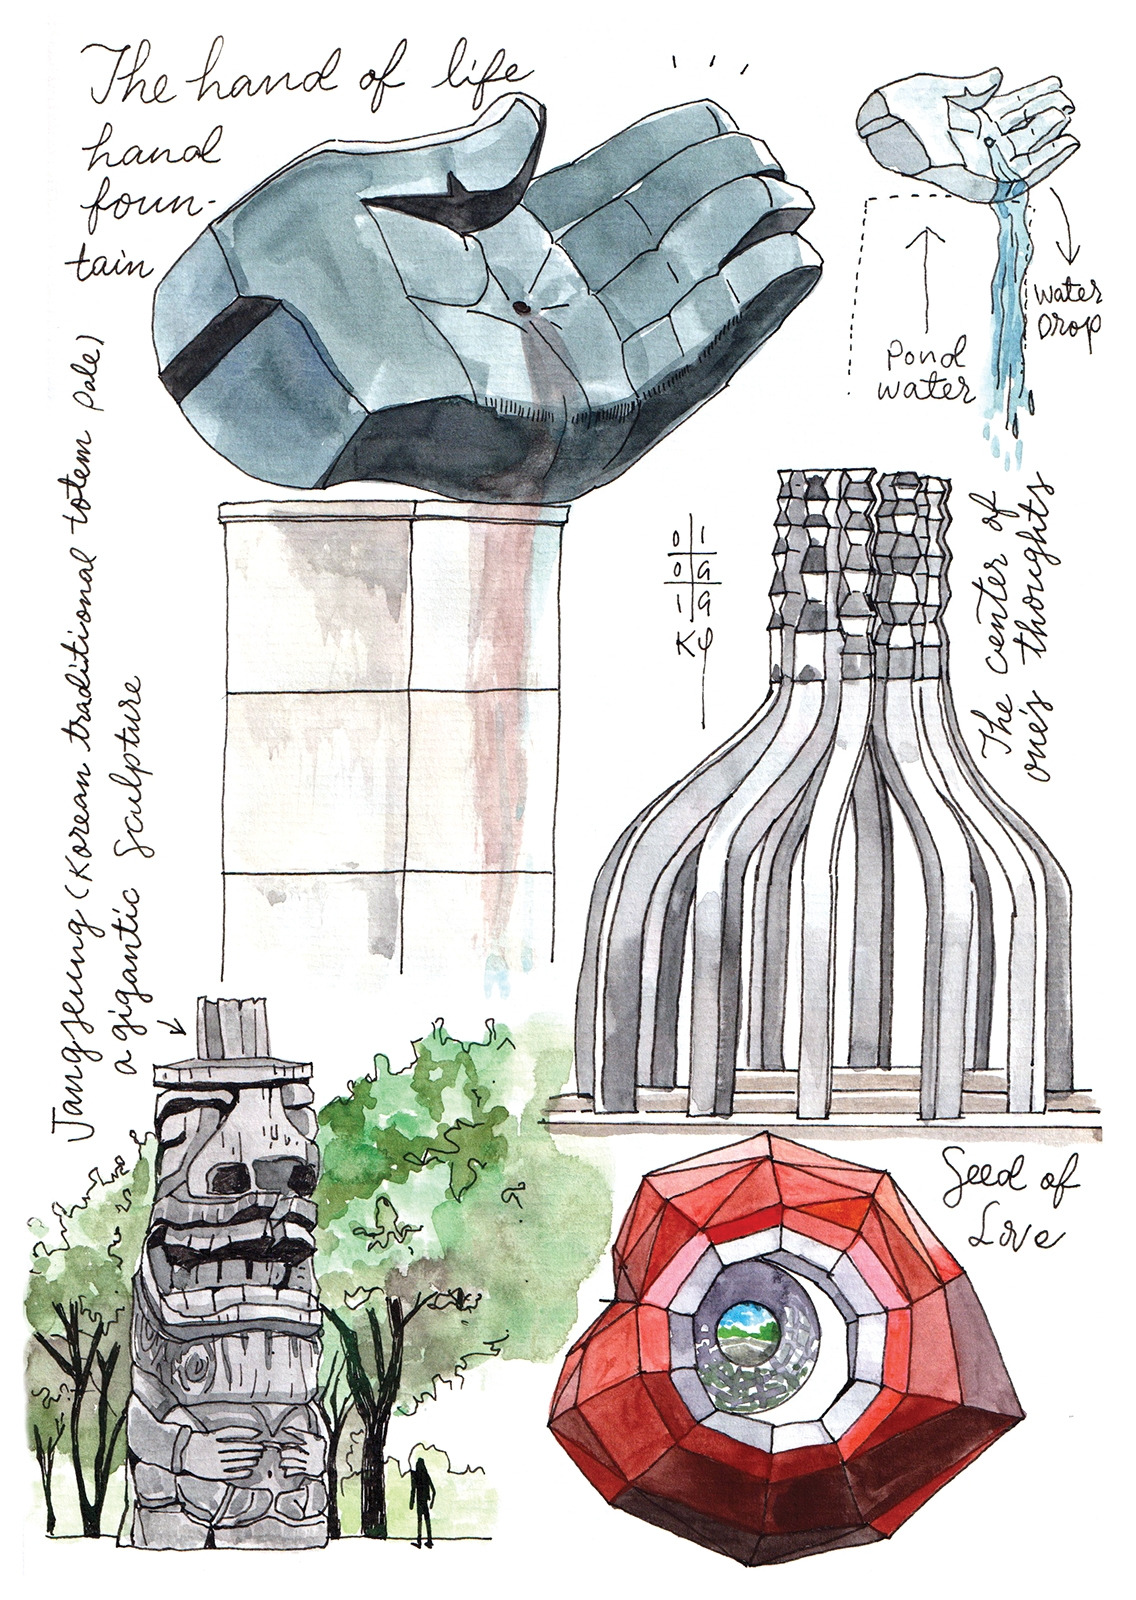 The hand of life
hand
foun-
tain
Pond
water
water
Drop
Jangseung (Korean traditional totem pale)
a gigantic sculpture
0 1
0 9
1 9
Kφ
The center of
one's thoughts
Seed of
Love